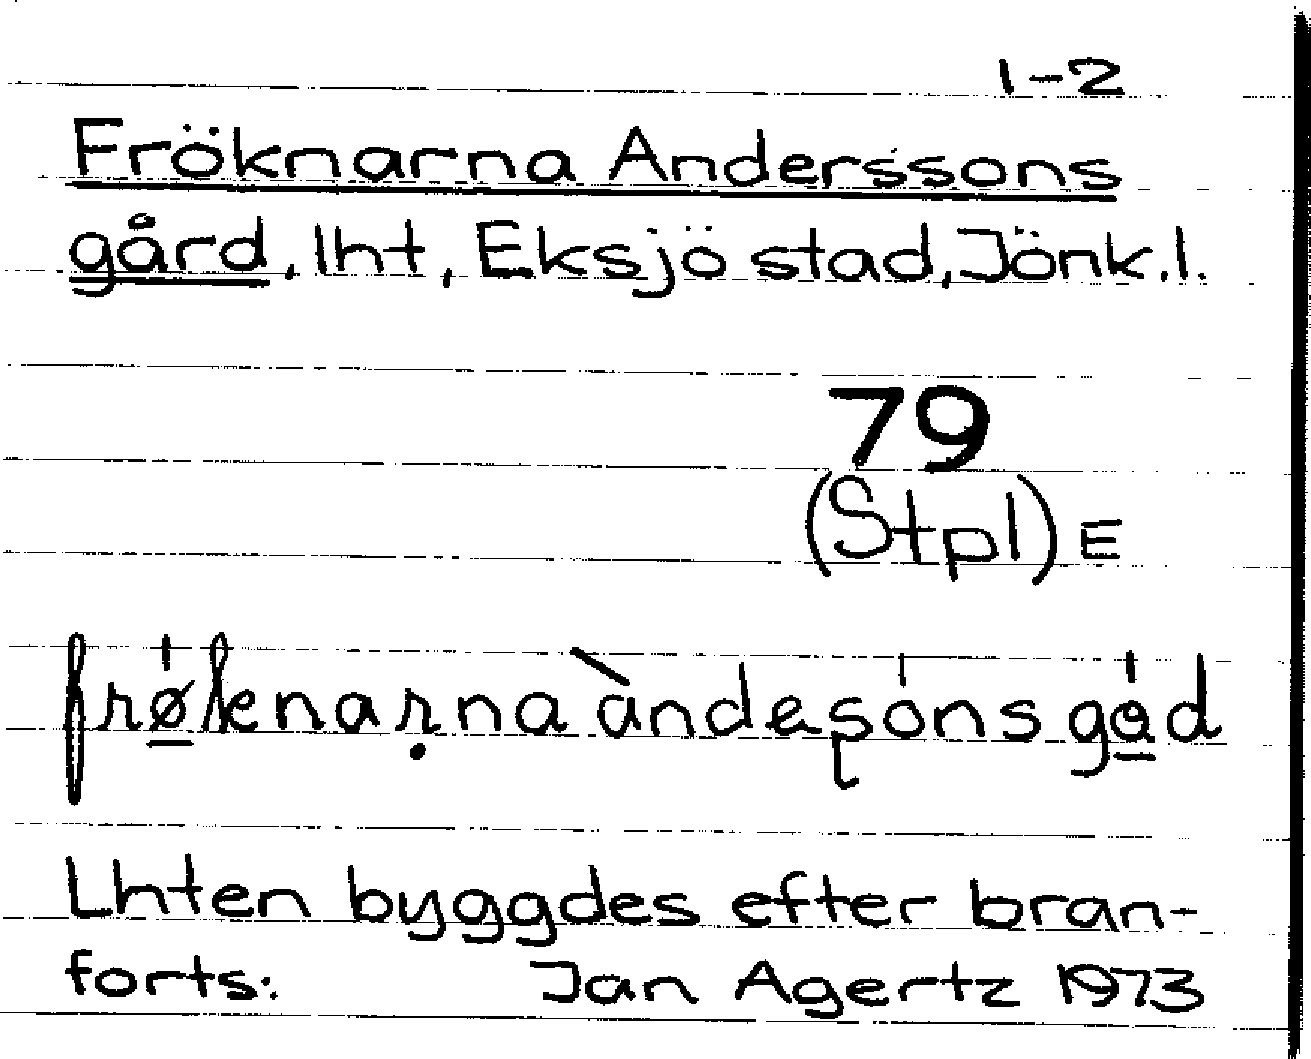 1-2
Fröknarna Anderssons
gård, lht, Eksjö stad, Jönk.l.
79
(Stpl) E
frø̲kenarṇa àndesonsgå̲d
Lhten byggdes efter bran-
forts. Jan Agertz 1973